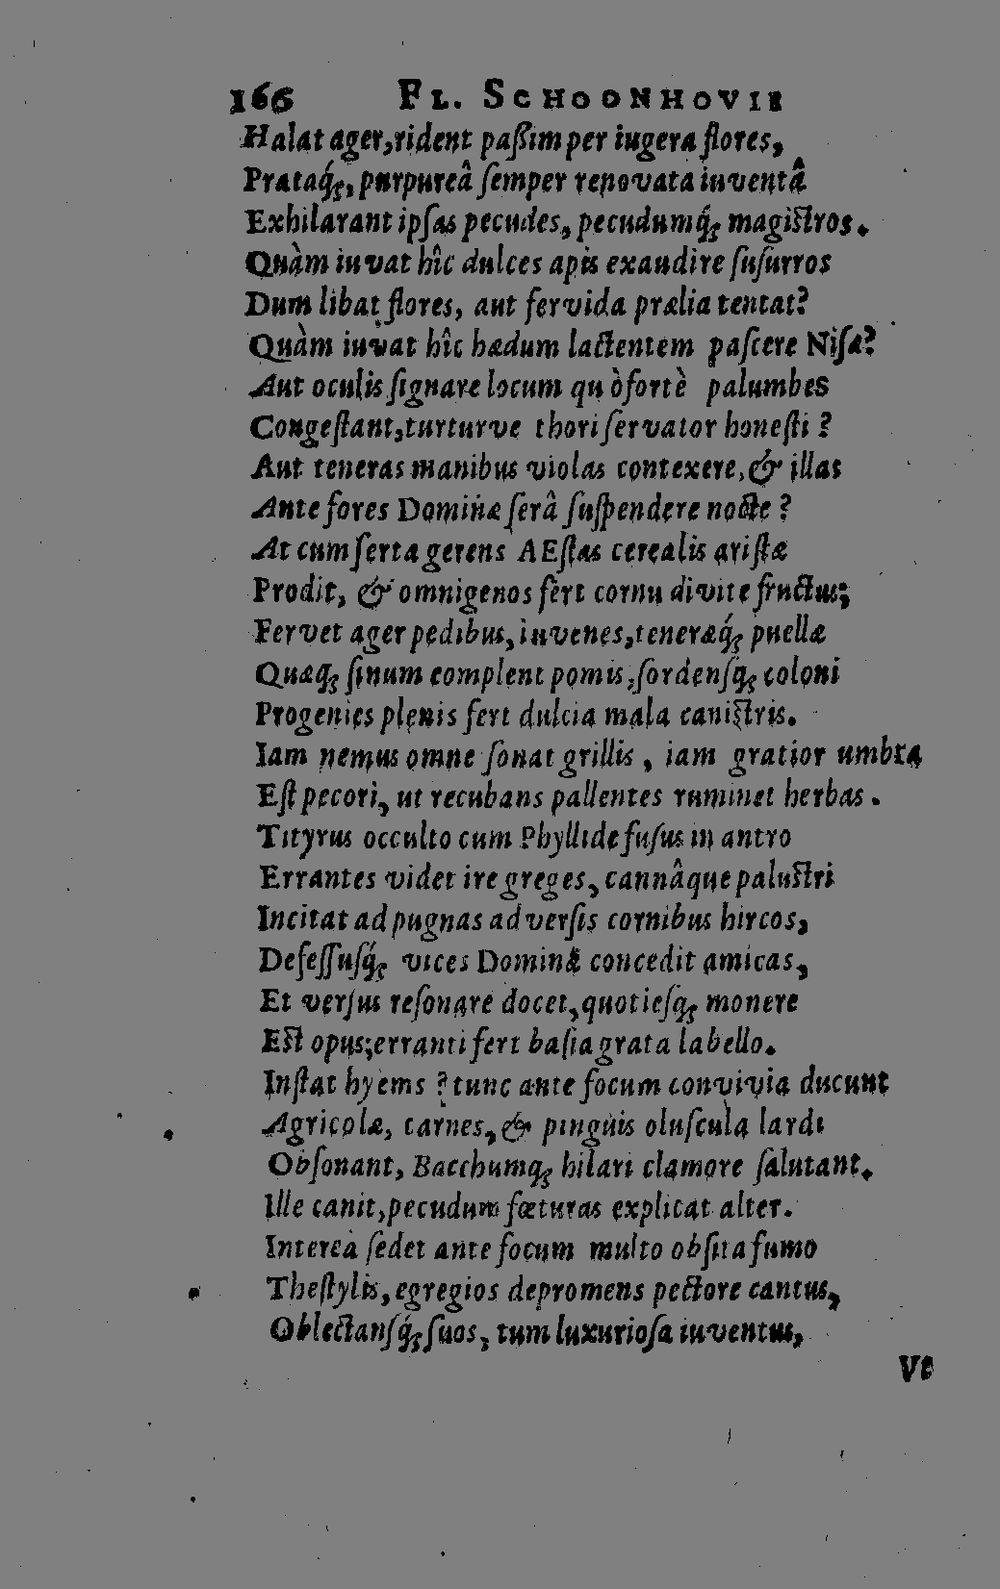 166 FL. SCHOONHOVII
Halat ager, rident paßim per iugera flores,
Prataq́;, purpureâ ſemper renovata iuventâ
Exhilarant ipſas pecudes, pecudumq́; magiſtros.
Quàm iuvat hîc dulces apis exaudire ſuſurros
Dum libat flores, aut fervida prælia tentat?
Quàm iuvat hîc hædum lactentem paſcere Niſæ?
Aut oculis ſignare locum quò fortè palumbes
Congeſtant, turturve thori ſervator honeſti?
Aut teneras manibus violas contexere, & illas
Ante fores Dominæ ſerâ ſuſpendere nocte?
At cum ſerta gerens AEſtas cerealis ariſtæ
Prodit, & omnigenos fert cornu divite fructus;
Fervet ager pedibus, iuvenes, teneræq́; puellæ
Quæq; ſinum complent pomis, ſordenſq; coloni
Progenies plenis fert dulcia mala caniſtris.
Iam nemus omne ſonat grillis, iam gratior umbra
Eſt pecori, ut recubans pallentes ruminet herbas.
Tityrus occulto cum Phyllide fuſus in antro
Errantes videt ire greges, cannâque paluſtri
Incitat ad pugnas adverſis cornibus hircos,
Defeſſuſq́; vices Dominæ concedit amicas,
Et verſus reſonare docet, quotieſq; monere
Eſt opus; erranti fert baſia grata labello.
Inſtat hyems? tunc ante focum convivia ducunt
Agricolæ, carnes, & pinguis oluſcula lardi
Obſonant, Bacchumq; hilari clamore ſalutant.
Ille canit, pecudum fœturas explicat alter.
Interea ſedet ante focum multo obſita fumo
Theſtylis, egregios depromens pectore cantus,
Oblectanſq́; ſuos, tum luxurioſa iuventus,
Vt